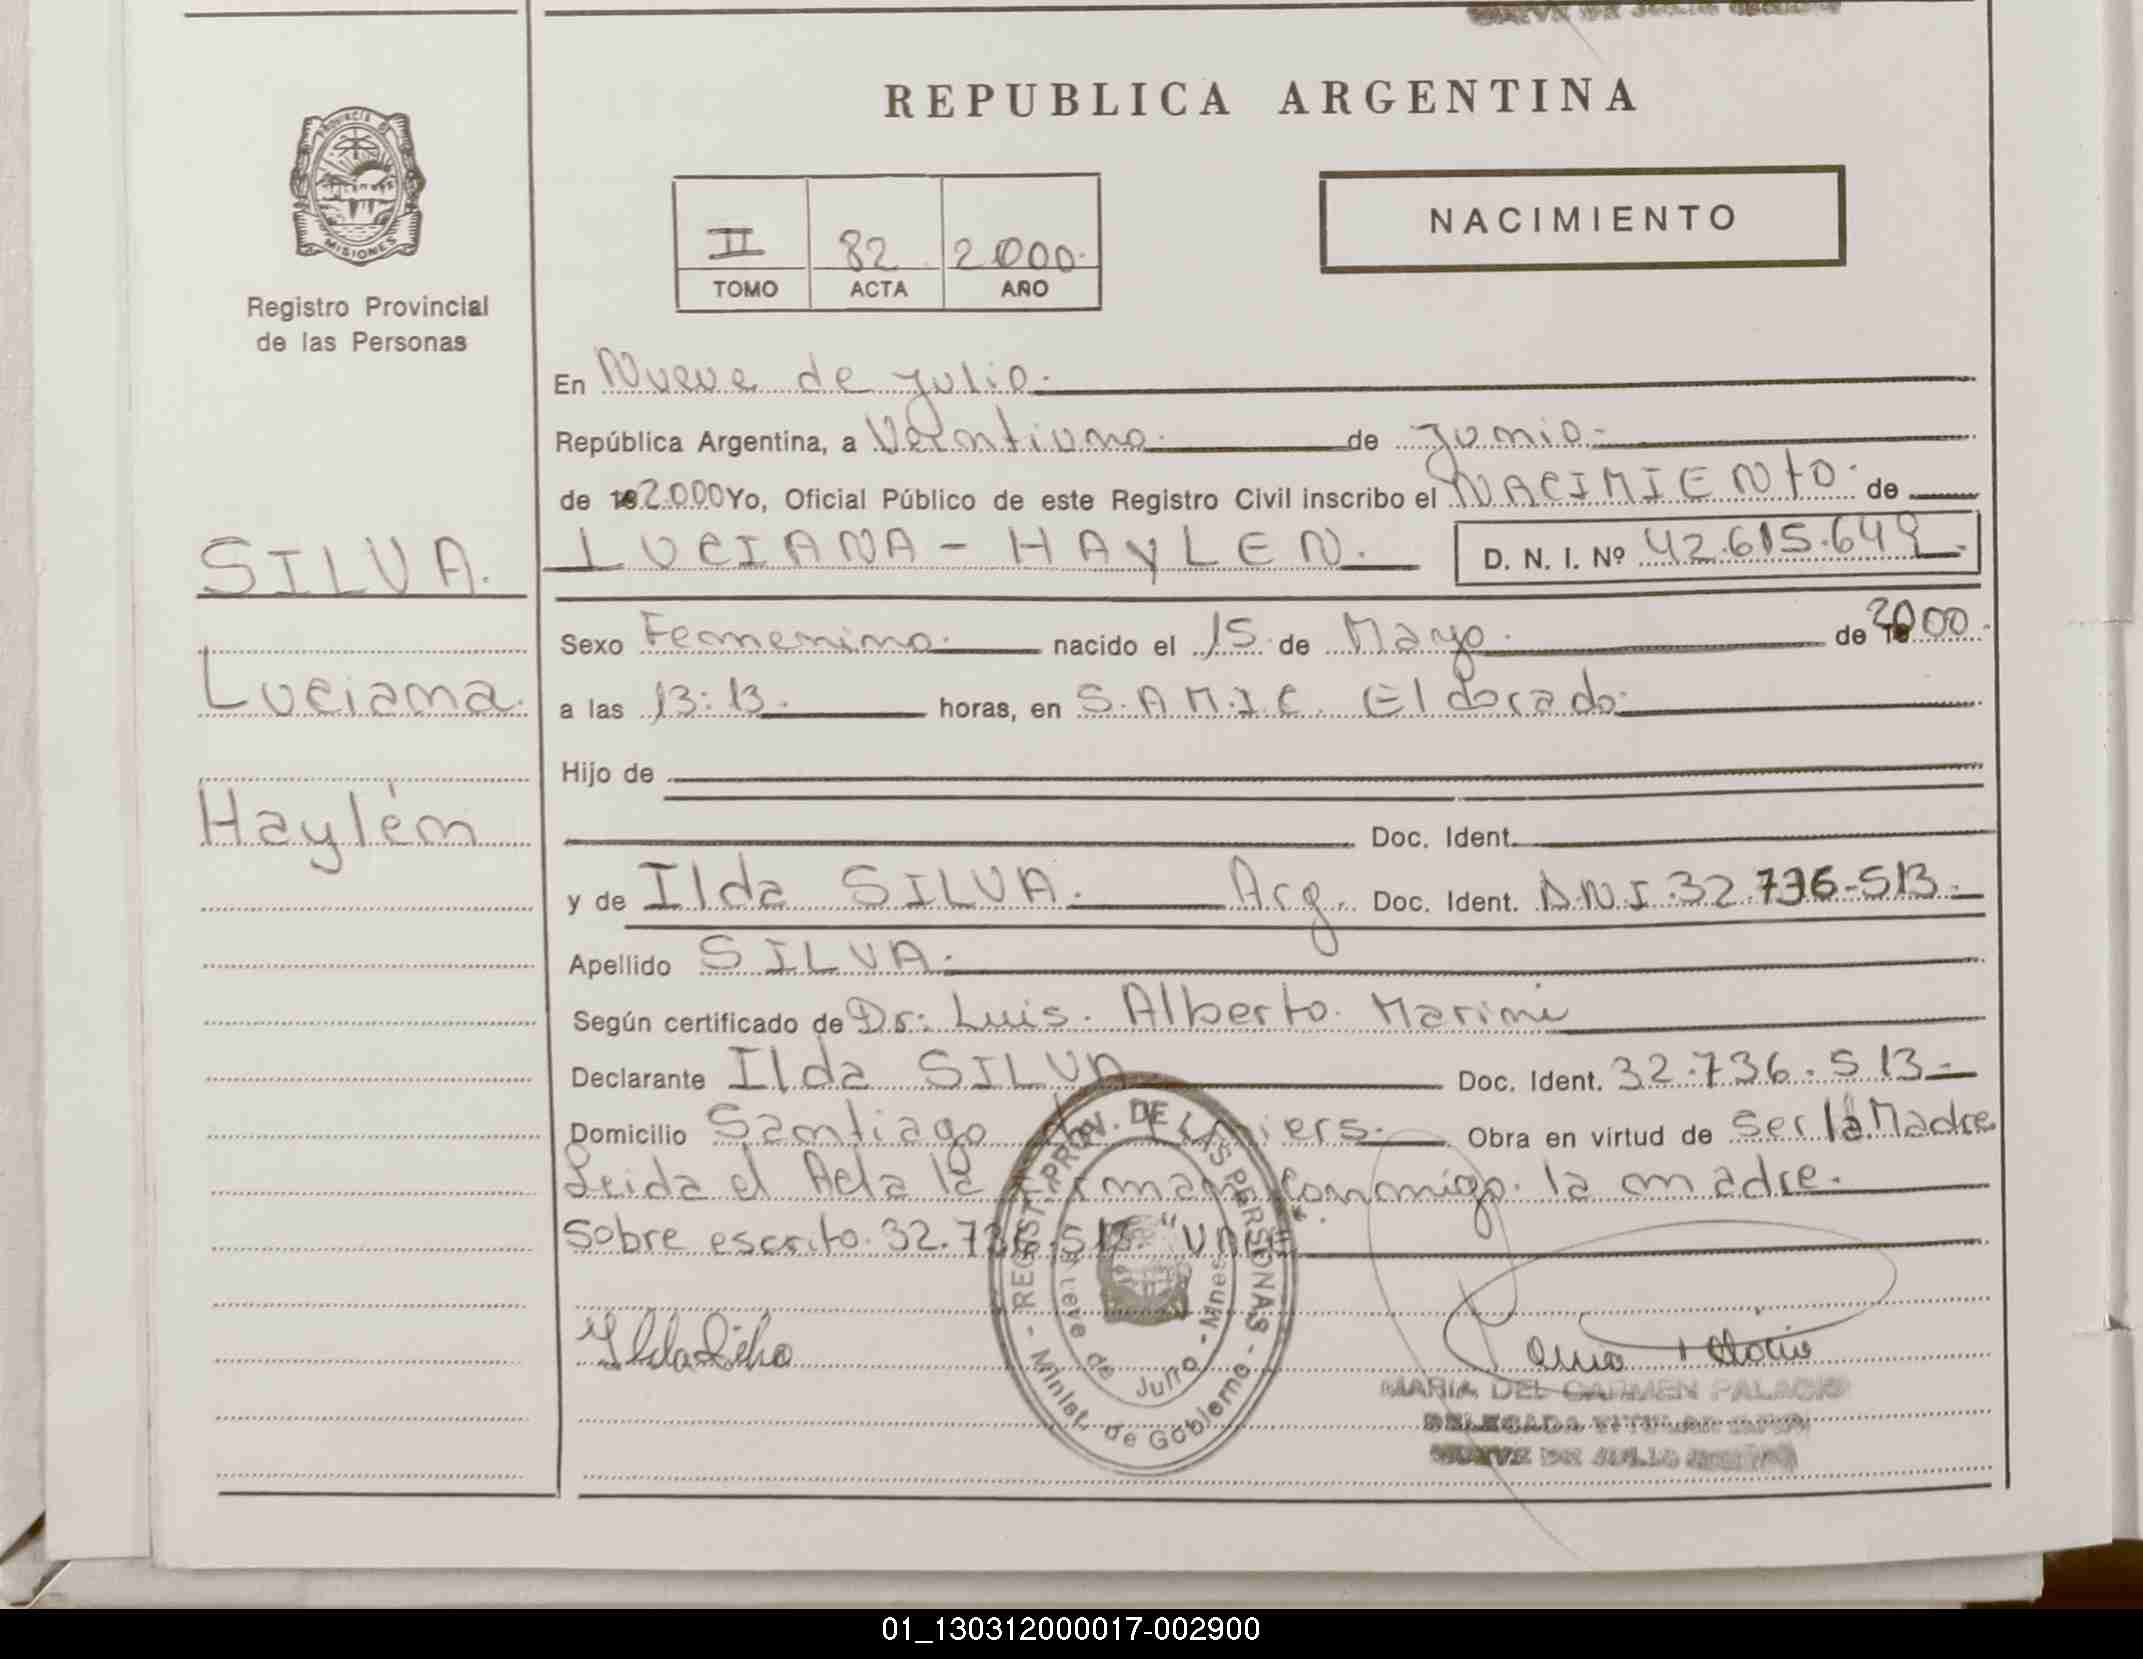 REPUBLICA ARGENTINA
PROVINCIA DE MISIONES
Registro Provincial
de las Personas
II 82 2000.
TOMO ACTA AÑO
NACIMIENTO
En Nueve de Julio.
República Argentina, a Veintiuno. de Junio.
de 19 2.000 Yo, Oficial Público de este Registro Civil inscribo el NACIMIENTO. de
LUCIANA - HAYLEN. D. N. I. Nº 42.615.649.
SILVA.
Luciana.
Haylén
Sexo Femenino. nacido el 15. de Mayo. de 2000.
a las 13:13. horas, en S.A.M.I.C. Eldorado.
Hijo de
Doc. Ident.
y de Ilda SILVA. Arg. Doc. Ident. D.N.I. 32.736-513.-
Apellido SILVA.
Según certificado de Dr: Luis. Alberto. Marini
Declarante Ilda SILVA Doc. Ident. 32.736.513.-
Domicilio Santiago de Liniers. Obra en virtud de Ser la Madre
Leida el Acta la firman conmigo. la madre.
Sobre escrito. 32.736.513. "VALE"
REGIST. PROV. DE LAS PERSONAS - Minist. de Gobierno -
Nueve de Julio - Mnes
MARIA DEL CARMEN PALACIO
DELEGADA TITULAR
NUEVE DE JULIO
01_130312000017-002900